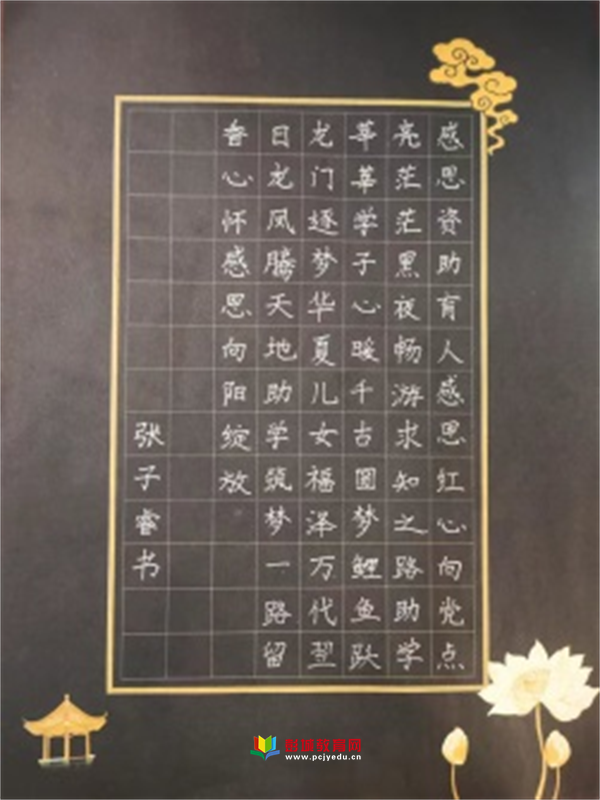 感恩资助育人感恩红心向党点
亮茫茫黑夜畅游求知之路助学
莘莘学子心暖千古圆梦鲤鱼跃
龙门逐梦华夏儿女福泽万代翌
日龙凤腾天地助学筑梦一路留
香心怀感恩向阳绽放
张子睿书
www.pcjyedu.cn